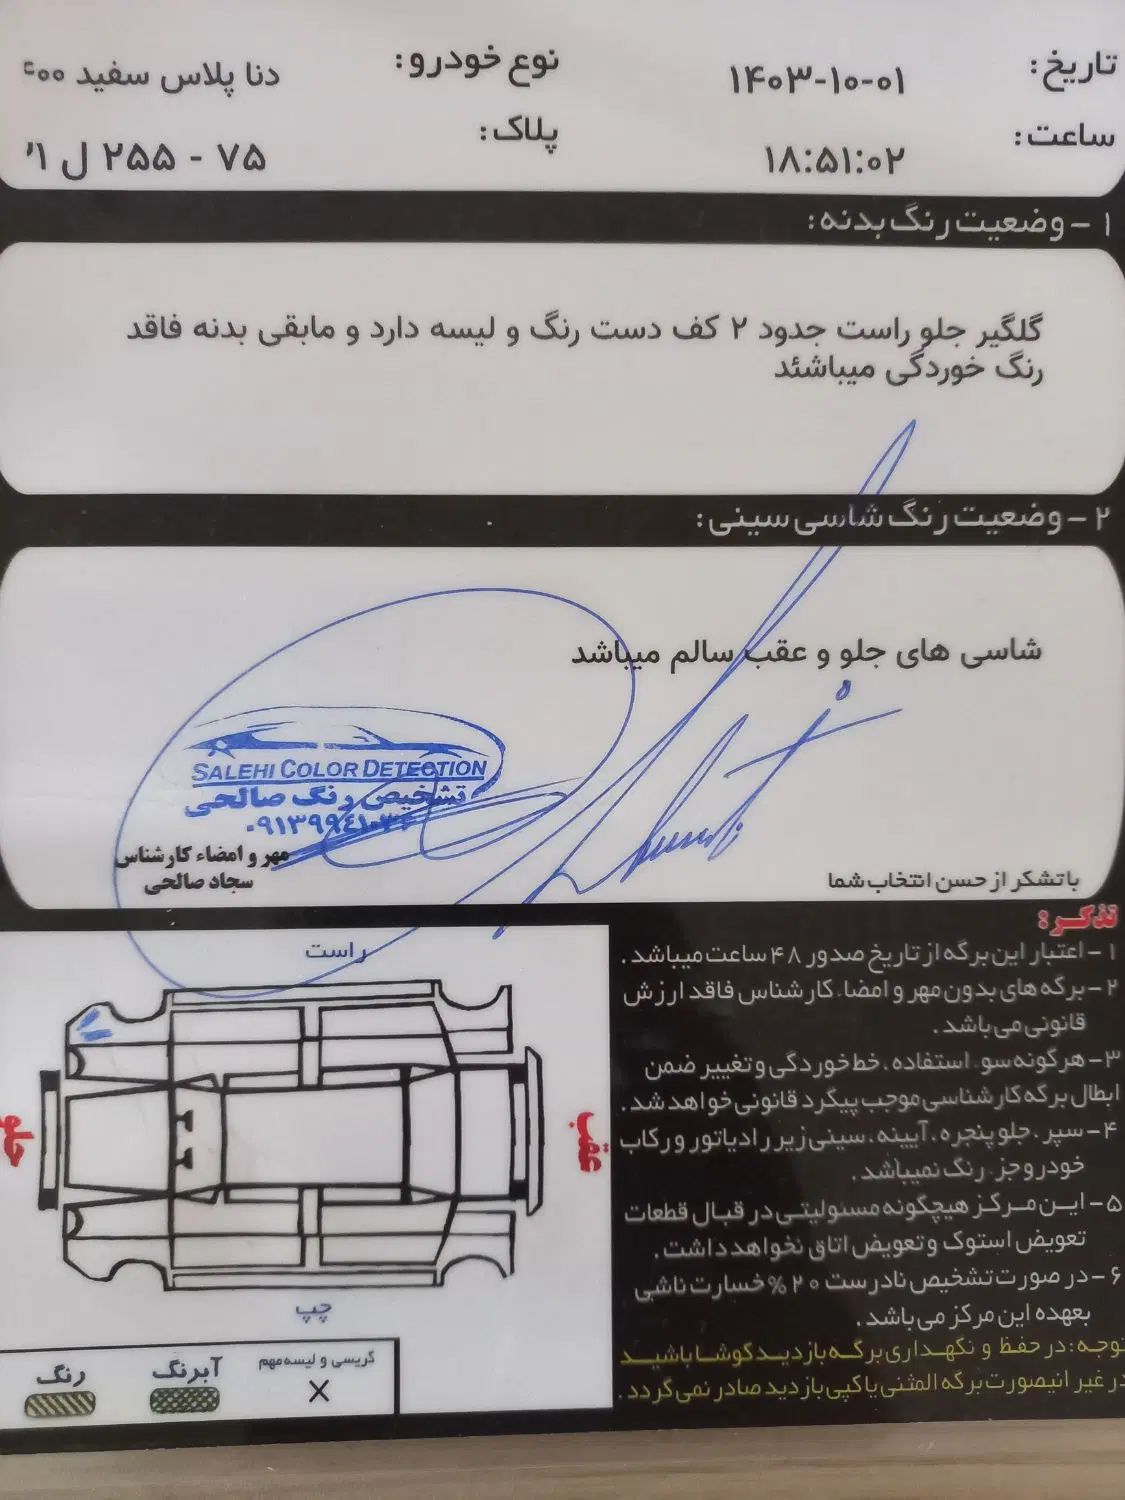 تاریخ: ۱۴۰۳-۱۰-۰۱ نوع خودرو: دنا پلاس سفید
ساعت: ۱۸:۵۱:۰۲ پلاک: ۷۵ - ۲۵۵ ل
۱ - وضعیت رنگ بدنه:
گلگیر جلو راست جدود ۲ کف دست رنگ و لیسه دارد و مابقی بدنه فاقد
رنگ خوردگی میباشئد
۲ - وضعیت رنگ شاسی سینی:
شاسی های جلو و عقب سالم میباشد
SALEHI COLOR DETECTION
تشخیص رنگ صالحی
مهر و امضاء کارشناس
سجاد صالحی
باتشکر از حسن انتخاب شما
تذکر:
۱ - اعتبار این برگه از تاریخ صدور ۴۸ ساعت میباشد.
۲ - برگه های بدون مهر و امضا، کارشناس فاقد ارزش
قانونی می باشد.
۳ - هرگونه سو، استفاده، خط خوردگی و تغییر ضمن
ابطال برگه کارشناسی موجب پیگرد قانونی خواهد شد.
۴ - سپر، جلو پنجره، آیینه، سینی زیر رادیاتور و رکاب
خودرو جز، رنگ نمیباشد.
۵ - این مرکز هیچگونه مسئولیتی در قبال قطعات
تعویض استوک و تعویض اتاق نخواهد داشت.
۶ - در صورت تشخیص نادرست ۲۰% خسارت ناشی
بعهده این مرکز می باشد.
توجه: در حفظ و نگهداری برگه بازدید کوشا باشید
در غیر اینصورت برگه المثنی یا کپی بازدید صادر نمی گردد.
راست
جلو
عقب
چپ
گریسی و لیسه مهم
X
آبرنگ
رنگ